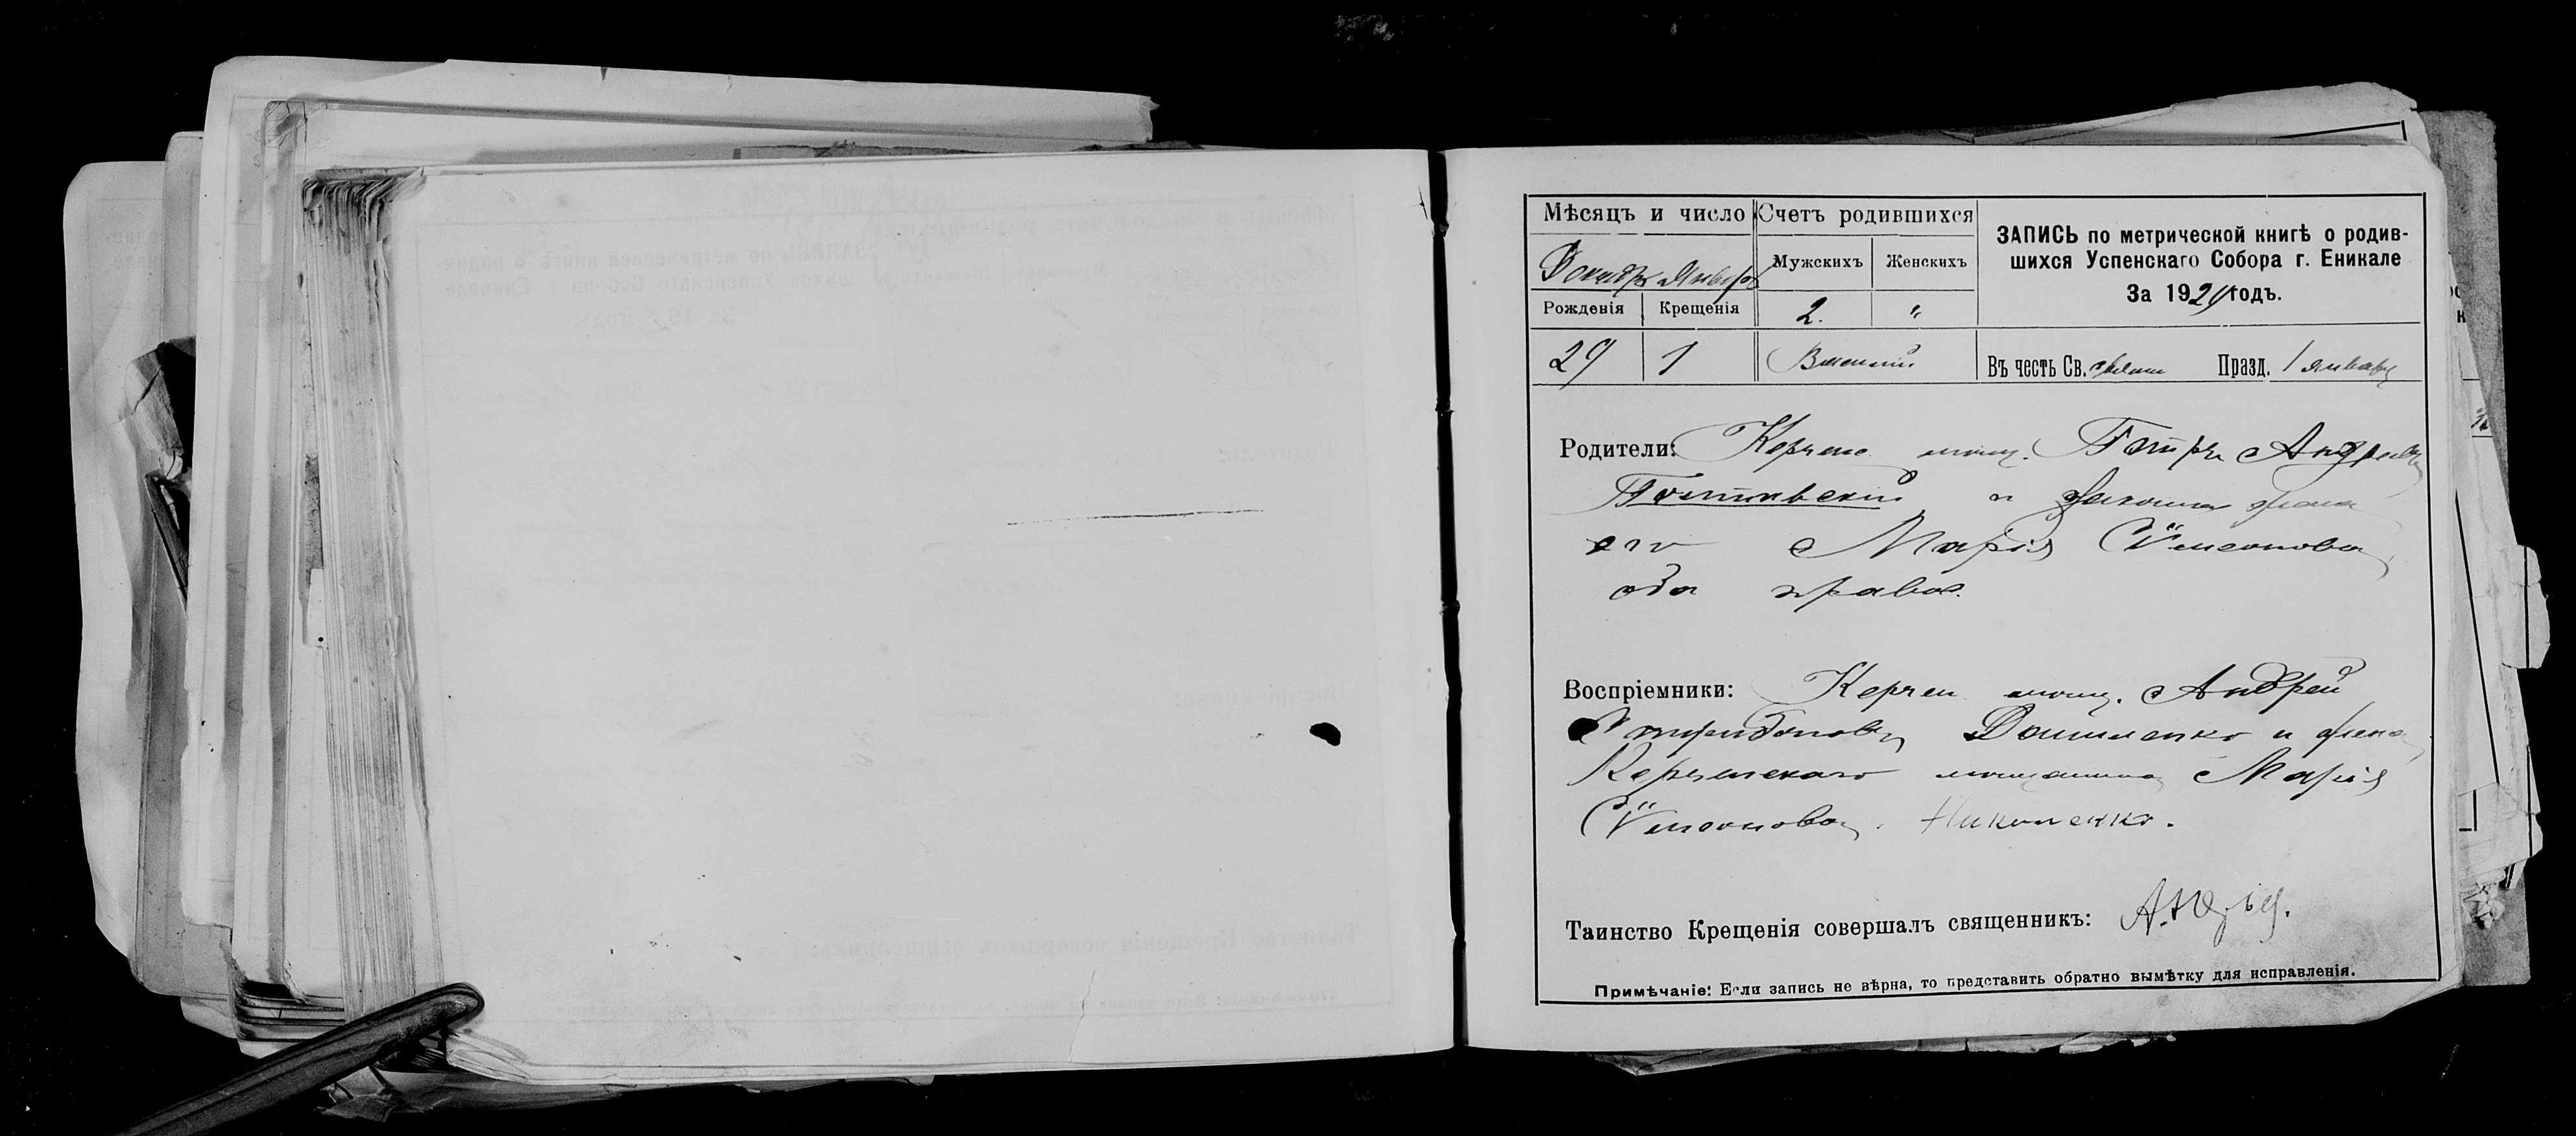 Мѣсяцъ и число Счетъ родившихся
ЗАПИСЬ по метрической книгѣ о родив-
шихся Успенскаго Собора г. Еникале
За 192 годъ.
Январь
Мужскихъ Женскихъ
Рожденія Крещенія 2. "
29 1 Василій Въ честь Св. Празд. 1 января
Родители: Керчен. мѣщ. Петръ Андреевъ
и законная жена
его Марія Сѵмеонова
оба правос.
Воспріемники: Керчен. мѣщ. Андрей
Спиридоновъ Даниленко и жена
Керченскаго мѣщанина Марія
Сѵмеонова. Николенко.
Таинство Крещенія совершалъ священникъ:
Примѣчаніе: Если запись не вѣрна, то представить обратно вымѣтку для исправленія.